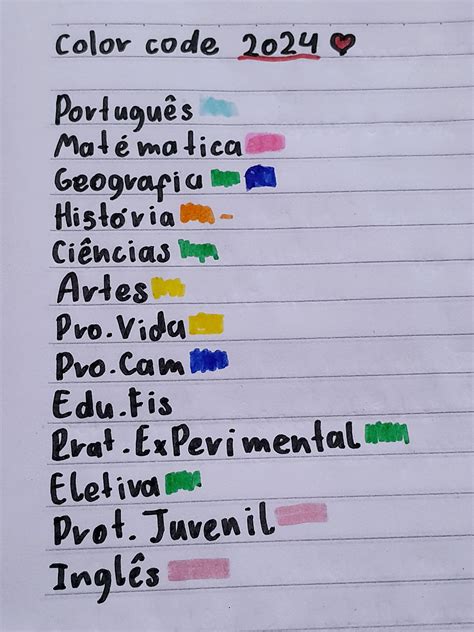 Color code 2024
Português
Matématica
Geografia
História
Ciências
Artes
Pro.Vida
Pro.Cam
Edu.Fis
Prat.ExPerimental
Eletiva
Prot. Juvenil
Inglês